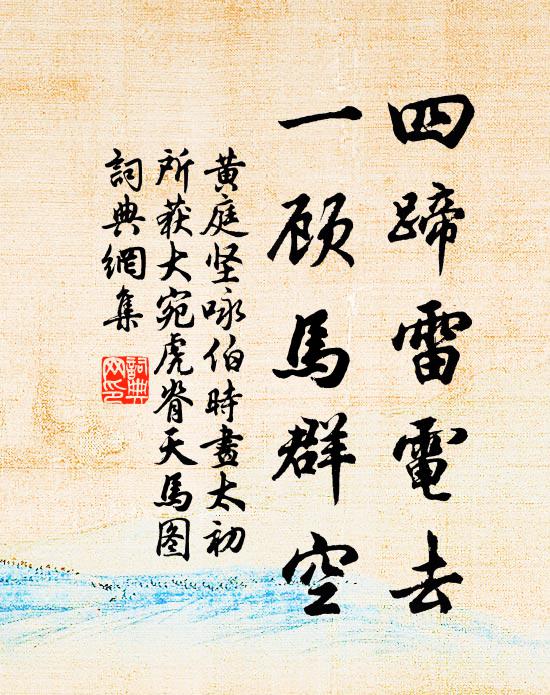 四蹄雷電去
一顾馬群空
黄庭坚咏伯時畫太初
所获大宛虎脊天馬图
詞典網集
詞典网印